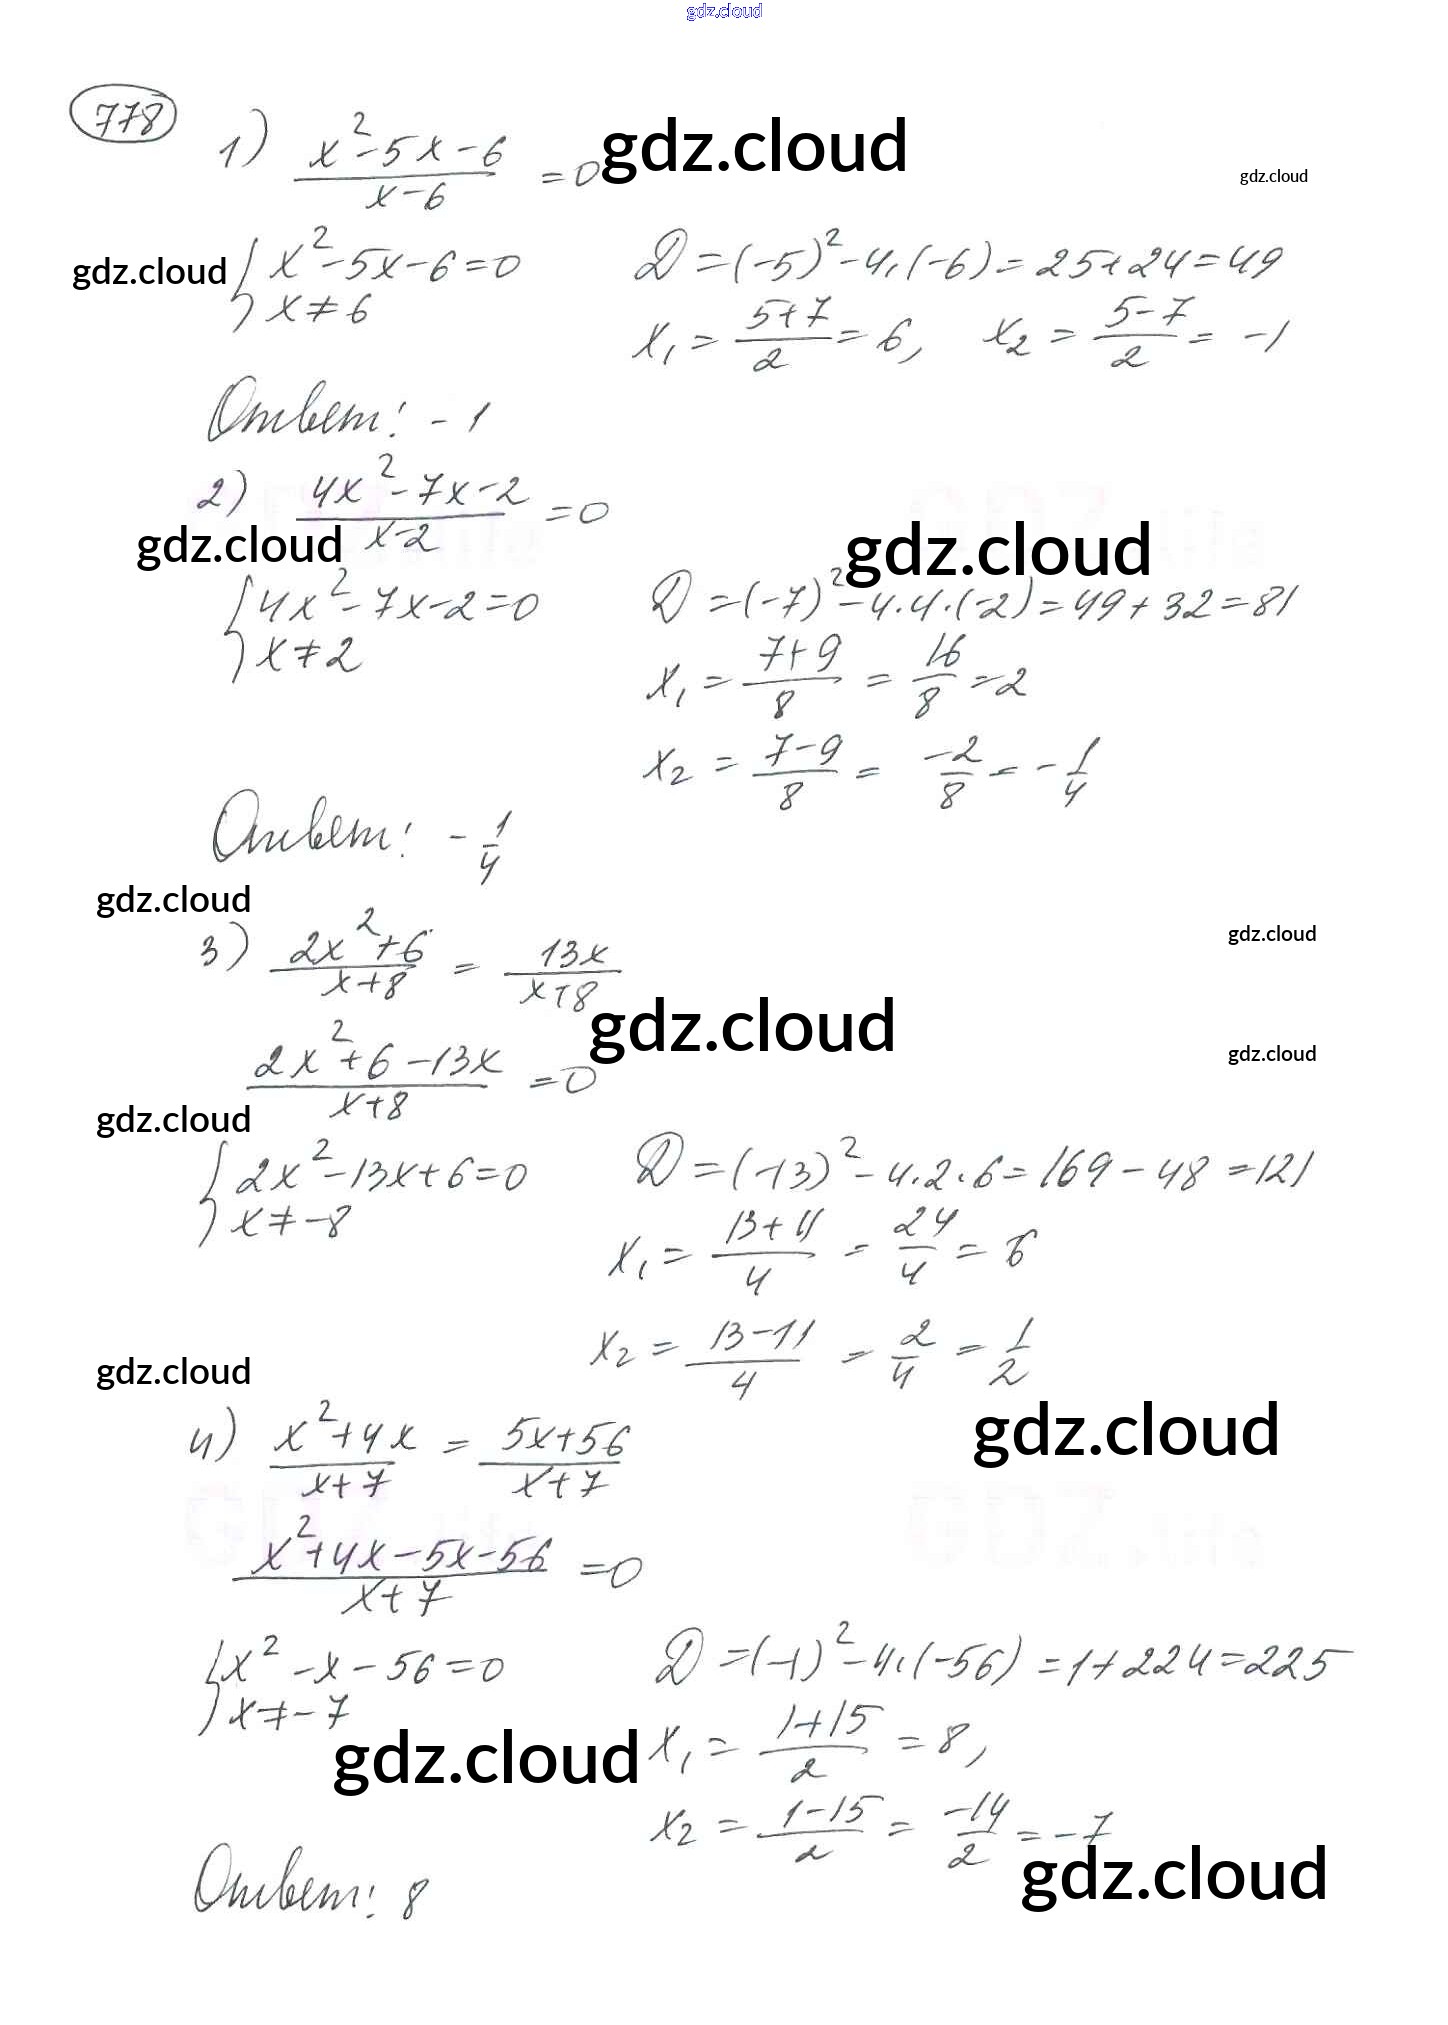 gdz.cloud
778
1) (x² - 5x - 6)/(x - 6) = 0
gdz.cloud
gdz.cloud
gdz.cloud
{ x² - 5x - 6 = 0
x ≠ 6
D = (-5)² - 4·(-6) = 25 + 24 = 49
x₁ = (5+7)/2 = 6, x₂ = (5-7)/2 = -1
Ответ: -1
2) (4x² - 7x - 2)/(x - 2) = 0
gdz.cloud
gdz.cloud
{ 4x² - 7x - 2 = 0
x ≠ 2
D = (-7)² - 4·4·(-2) = 49 + 32 = 81
x₁ = (7+9)/8 = 16/8 = 2
x₂ = (7-9)/8 = -2/8 = -1/4
Ответ: -1/4
gdz.cloud
3) (2x² + 6)/(x + 8) = 13x/(x + 8)
gdz.cloud
gdz.cloud
(2x² + 6 - 13x)/(x + 8) = 0
gdz.cloud
gdz.cloud
{ 2x² - 13x + 6 = 0
x ≠ -8
D = (-13)² - 4·2·6 = 169 - 48 = 121
x₁ = (13+11)/4 = 24/4 = 6
x₂ = (13-11)/4 = 2/4 = 1/2
gdz.cloud
4) (x² + 4x)/(x + 7) = (5x + 56)/(x + 7)
gdz.cloud
(x² + 4x - 5x - 56)/(x + 7) = 0
{ x² - x - 56 = 0
x ≠ -7
D = (-1)² - 4·(-56) = 1 + 224 = 225
gdz.cloud
x₁ = (1+15)/2 = 8,
x₂ = (1-15)/2 = -14/2 = -7
gdz.cloud
Ответ: 8